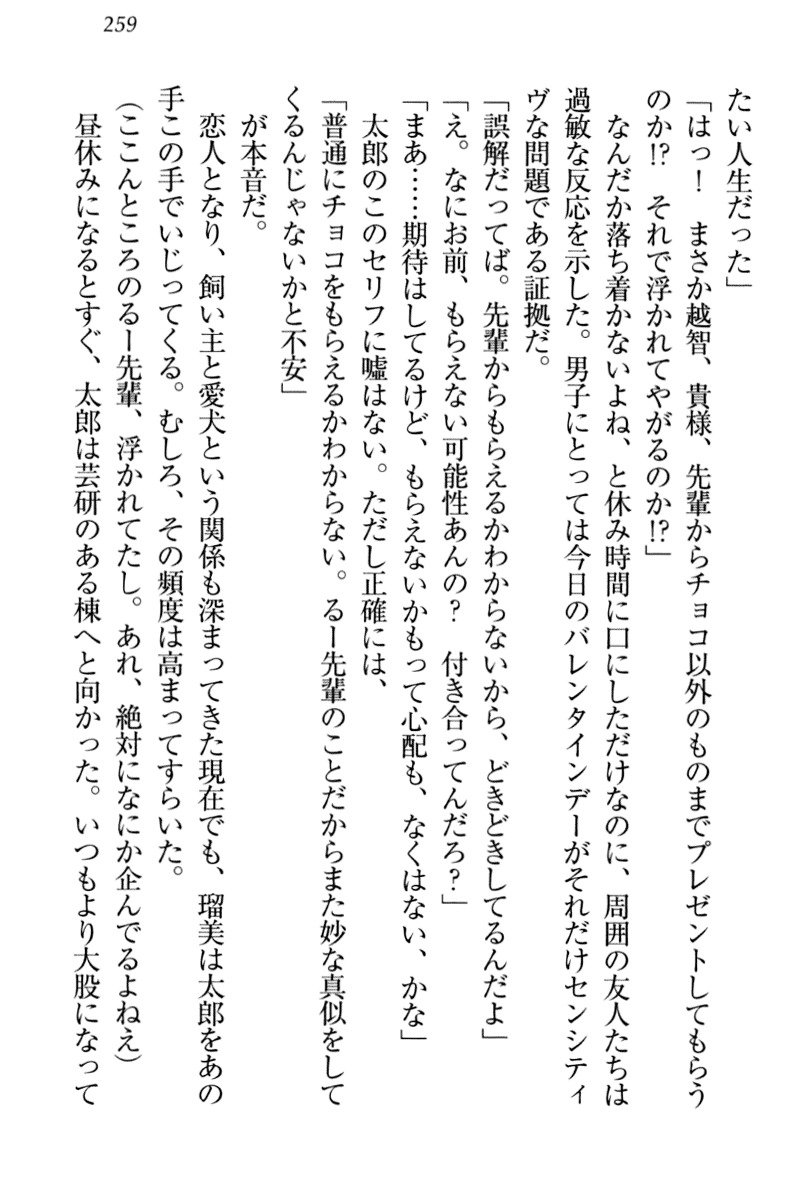 259
たい人生だった」
「はっ！　まさか越智、貴様、先輩からチョコ以外のものまでプレゼントしてもらう
のか!?　それで浮かれてやがるのか!?」
　なんだか落ち着かないよね、と休み時間に口にしただけなのに、周囲の友人たちは
過敏な反応を示した。男子にとっては今日のバレンタインデーがそれだけセンシティ
ヴな問題である証拠だ。
「誤解だってば。先輩からもらえるかわからないから、どきどきしてるんだよ」
「え。なにお前、もらえない可能性あんの？　付き合ってんだろ？」
「まあ……期待はしてるけど、もらえないかもって心配も、なくはない、かな」
　太郎のこのセリフに嘘はない。ただし正確には、
「普通にチョコをもらえるかわからない。るー先輩のことだからまた妙な真似をして
くるんじゃないかと不安」
　が本音だ。
　恋人となり、飼い主と愛犬という関係も深まってきた現在でも、瑠美は太郎をあの
手この手でいじってくる。むしろ、その頻度は高まってすらいた。
（ここんところのるー先輩、浮かれてたし。あれ、絶対になにか企んでるよねえ）
　昼休みになるとすぐ、太郎は芸研のある棟へと向かった。いつもより大股になって